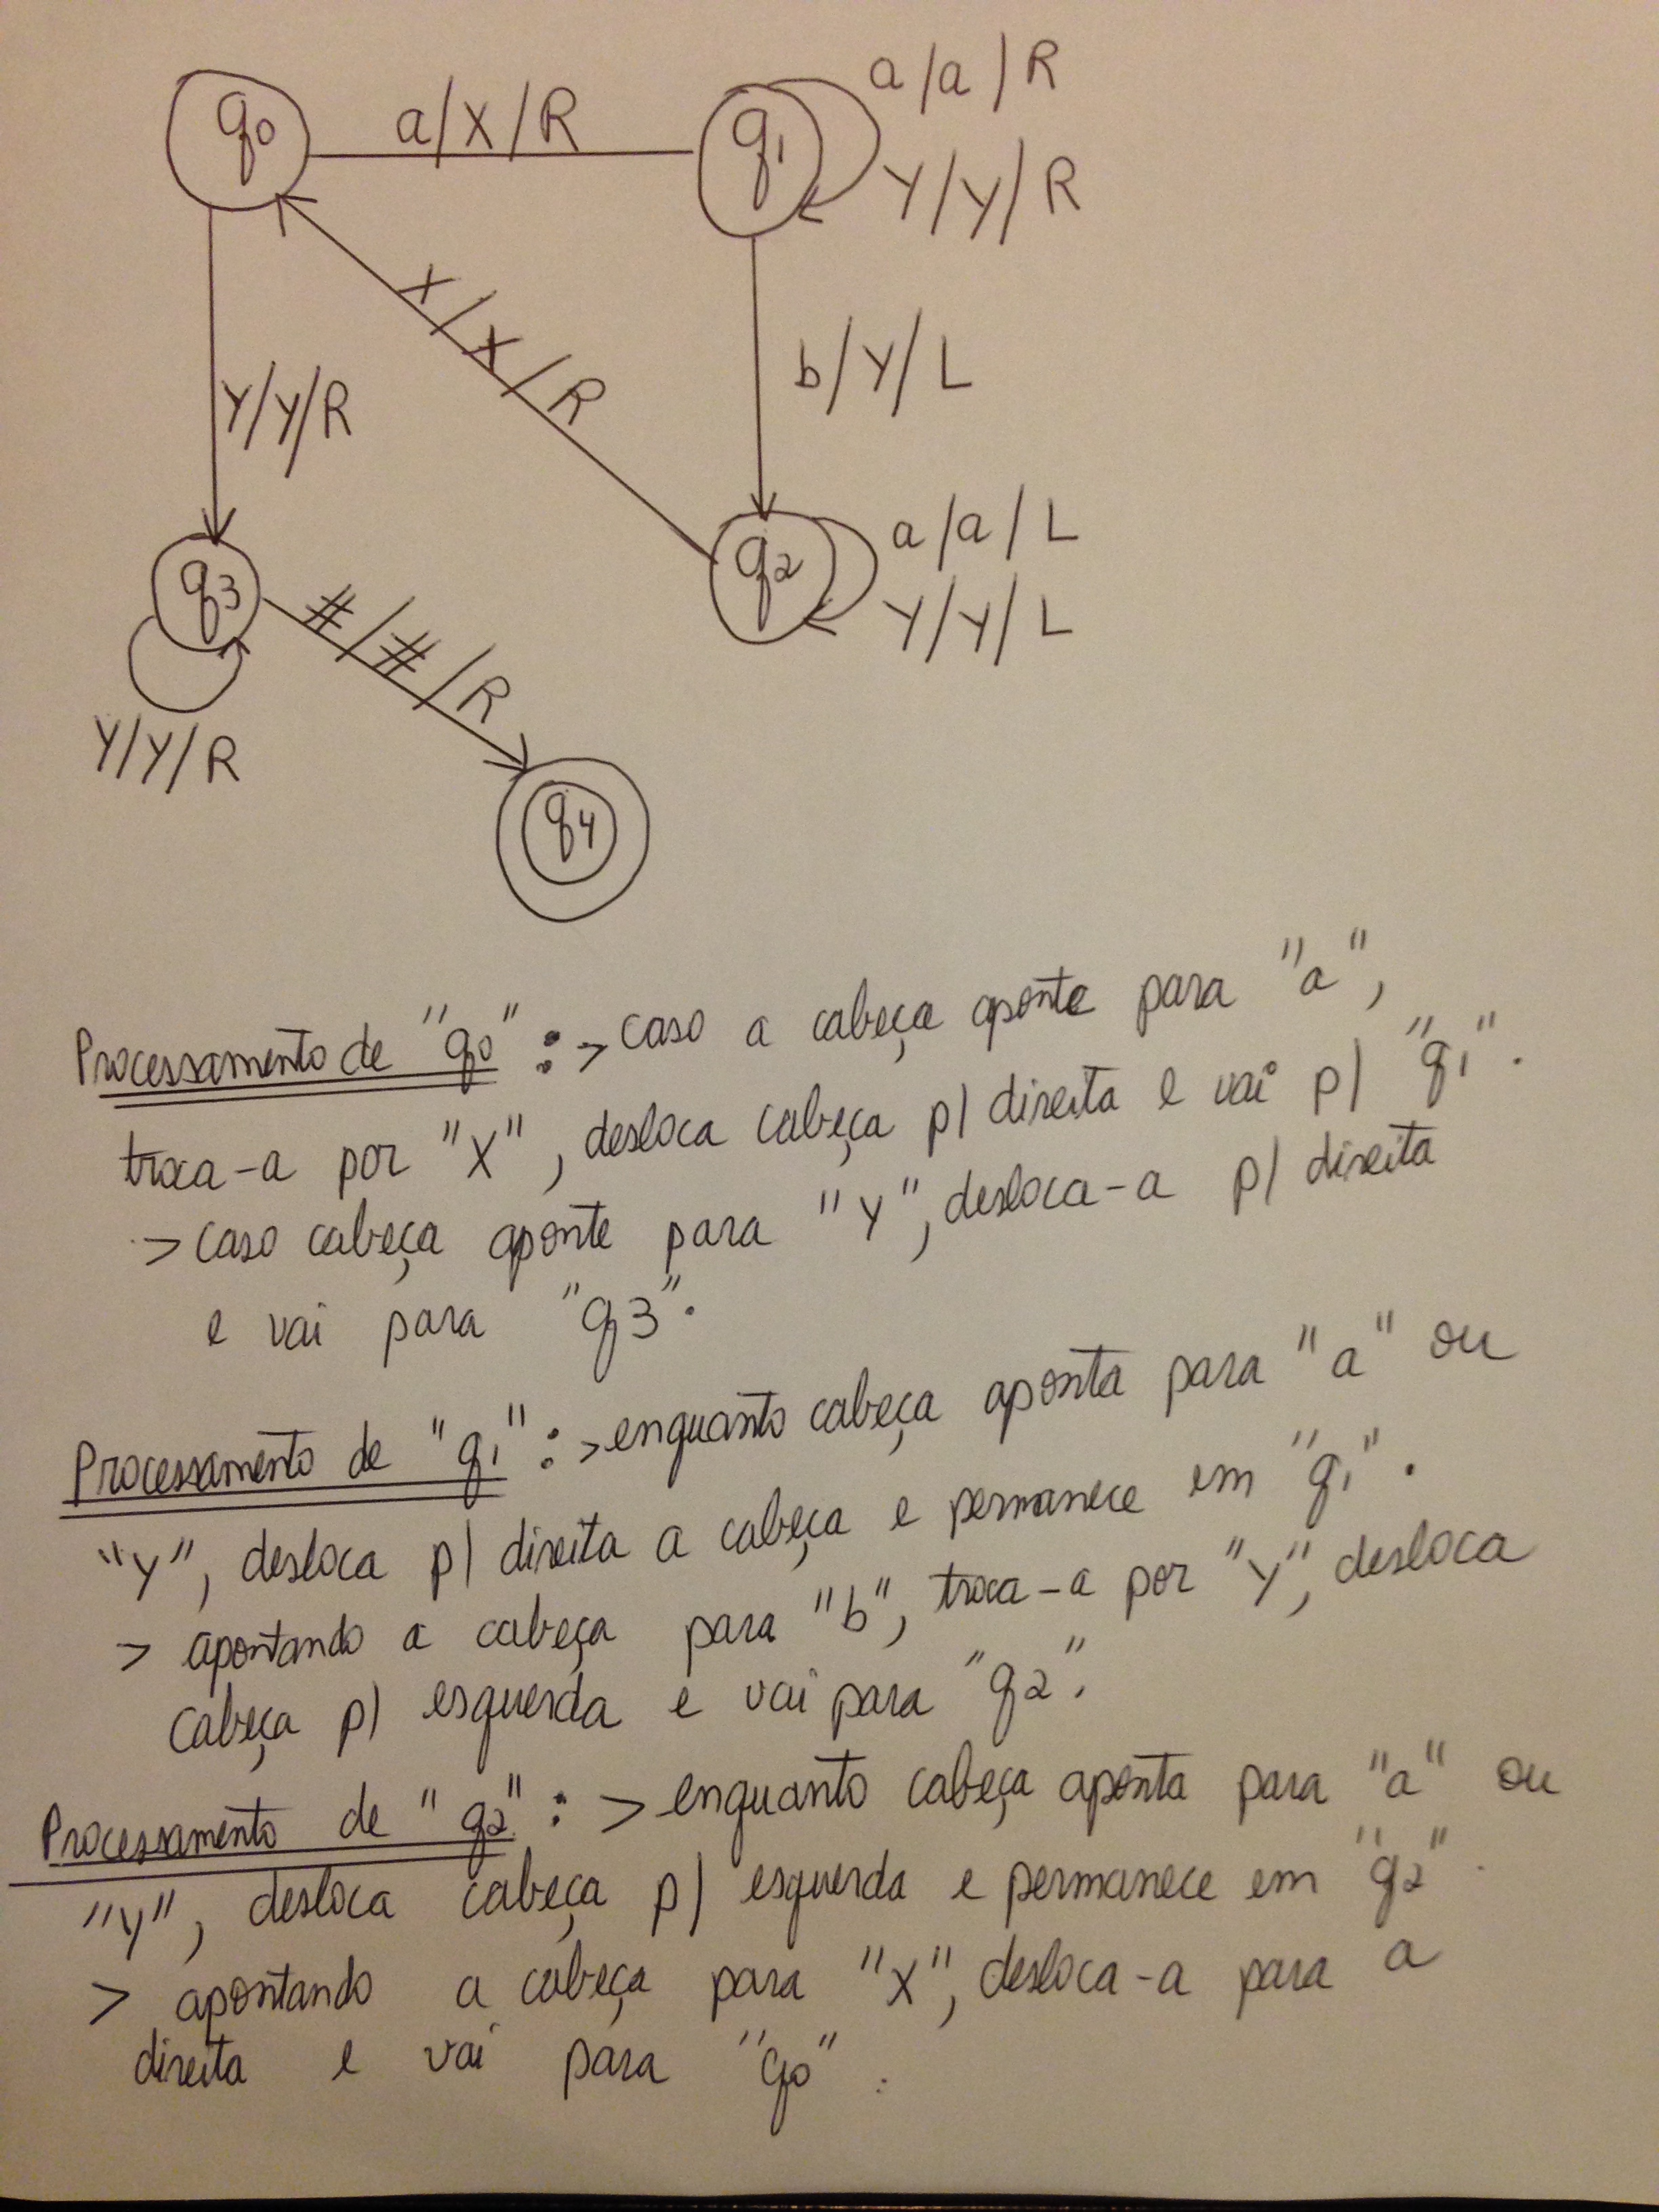 q0
a/X/R
q1
a/a/R
Y/Y/R
X/X/R
b/Y/L
Y/Y/R
q3
#/#/R
q2
a/a/L
Y/Y/L
Y/Y/R
q4
Processamento de "q0" : > caso a cabeça aponte para "a",
troca-a por "X", desloca cabeça p/ direita e vai p/ "q1".
> caso cabeça aponte para "Y", desloca-a p/ direita
e vai para "q3".
Processamento de "q1" : > enquanto cabeça aponta para "a" ou
"Y", desloca p/ direita a cabeça e permanece em "q1".
> apontando a cabeça para "b", troca-a por "Y", desloca
cabeça p/ esquerda e vai para "q2".
Processamento de "q2" : > enquanto cabeça aponta para "a" ou
"Y", desloca cabeça p/ esquerda e permanece em "q2".
> apontando a cabeça para "X", desloca-a para a
direita e vai para "q0".